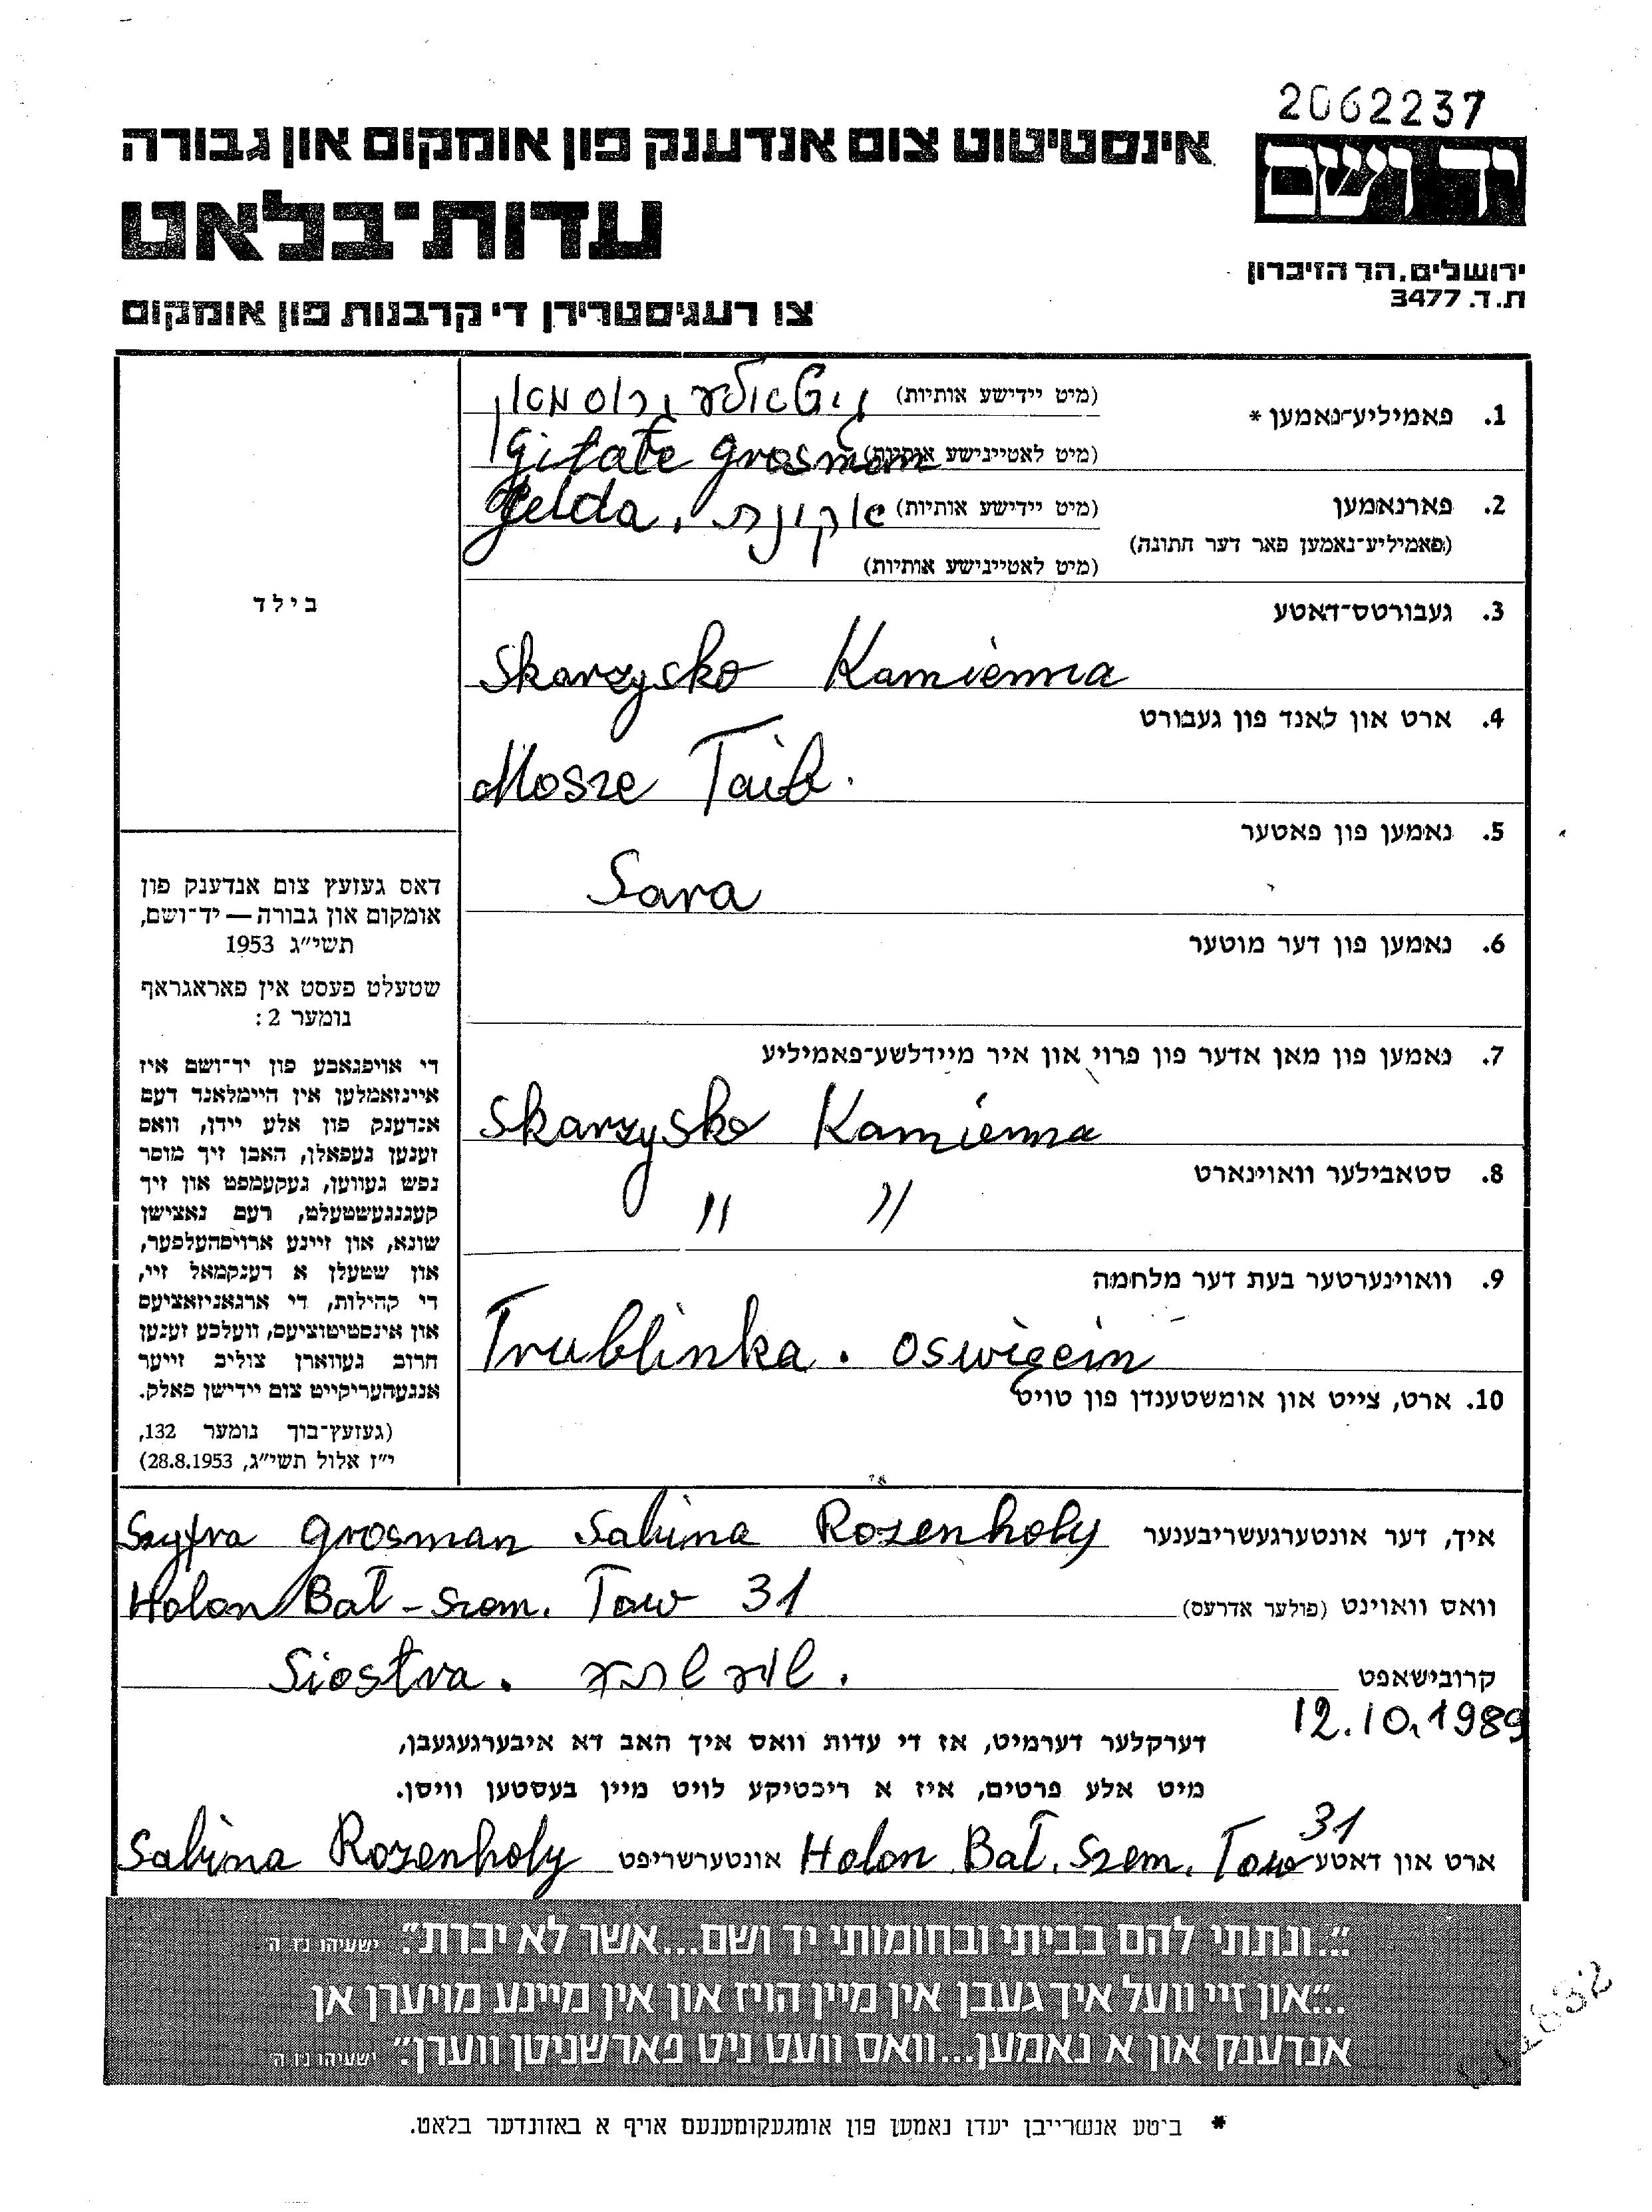 2062237
יד ושם
ירושלים, הר הזיכרון
ת. ד. 3477
אינסטיטוט צום אנדענק פון אומקום און גבורה
עדות־בלאט
צו רעגיסטרירן די קרבנות פון אומקום
בילד
דאס געזעץ צום אנדענק פון
אומקום און גבורה — יד־ושם,
תשי״ג 1953
שטעלט פעסט אין פאראגראף
נומער 2:
די אויפגאבע פון יד־ושם איז
איינזאמלען אין היימלאנד דעם
אנדענק פון אלע יידן, וואס
זענען געפאלן, האבן זיך מוסר
נפש געווען, געקעמפט און זיך
קעגנגעשטעלט, דעם נאצישן
שונא, און זיינע ארויסהעלפער,
און שטעלן א דענקמאל זיי,
די קהילות, די ארגאניזאציעס
און אינסטיטוציעס, וועלכע זענען
חרוב געווארן צוליב זייער
אנגעהעריקייט צום יידישן פאלק.
(געזעץ־בוך נומער 132,
י״ז אלול תשי״ג, 28.8.1953)
1. פאמיליע־נאמען * (מיט יידישע אותיות) גרוסמאן
(מיט לאטיינישע אותיות) Gitale Grosman
2. פארנאמען (מיט יידישע אותיות) Jelda.
(פאמיליע־נאמען פאר דער חתונה) (מיט לאטיינישע אותיות)
3. געבורטס־דאטע
Skarzysko Kamienna
4. ארט און לאנד פון געבורט
Mosze Taib.
5. נאמען פון פאטער
Sara
6. נאמען פון דער מוטער
7. נאמען פון מאן אדער פון פרוי און איר מיידלשע־פאמיליע
Skarzysko Kamienna
8. סטאבילער וואוינארט
〃 〃
9. וואוינערטער בעת דער מלחמה
Trublinka. oswigein
10. ארט, צייט און אומשטענדן פון טויט
איך, דער אונטערגעשריבענער Szyfra Grosman Sabina Rozenholy
וואס וואוינט (פולער אדרעס) Holon Bat-Szem. Tow 31
קרובישאפט Siostra.
12.10.1989
דערקלער דערמיט, אז די עדות וואס איך האב דא איבערגעגעבן,
מיט אלע פרטים, איז א ריכטיקע לויט מיין בעסטען וויסן.
ארט און דאטע Holon Bat. Szem. Tow 31 אונטערשריפט Sabina Rozenholy
״...ונתתי להם בביתי ובחומותי יד ושם...אשר לא יכרת״. ישעיהו נו ה
...״און זיי וועל איך געבן אין מיין הויז און אין מיינע מויערן אן
אנדענק און א נאמען...וואס וועט ניט פארשניטן ווערן״. ישעיהו נו ה
* ביטע אנשרייבן יעדן נאמען פון אומגעקומענעם אויף א באזונדער בלאט.